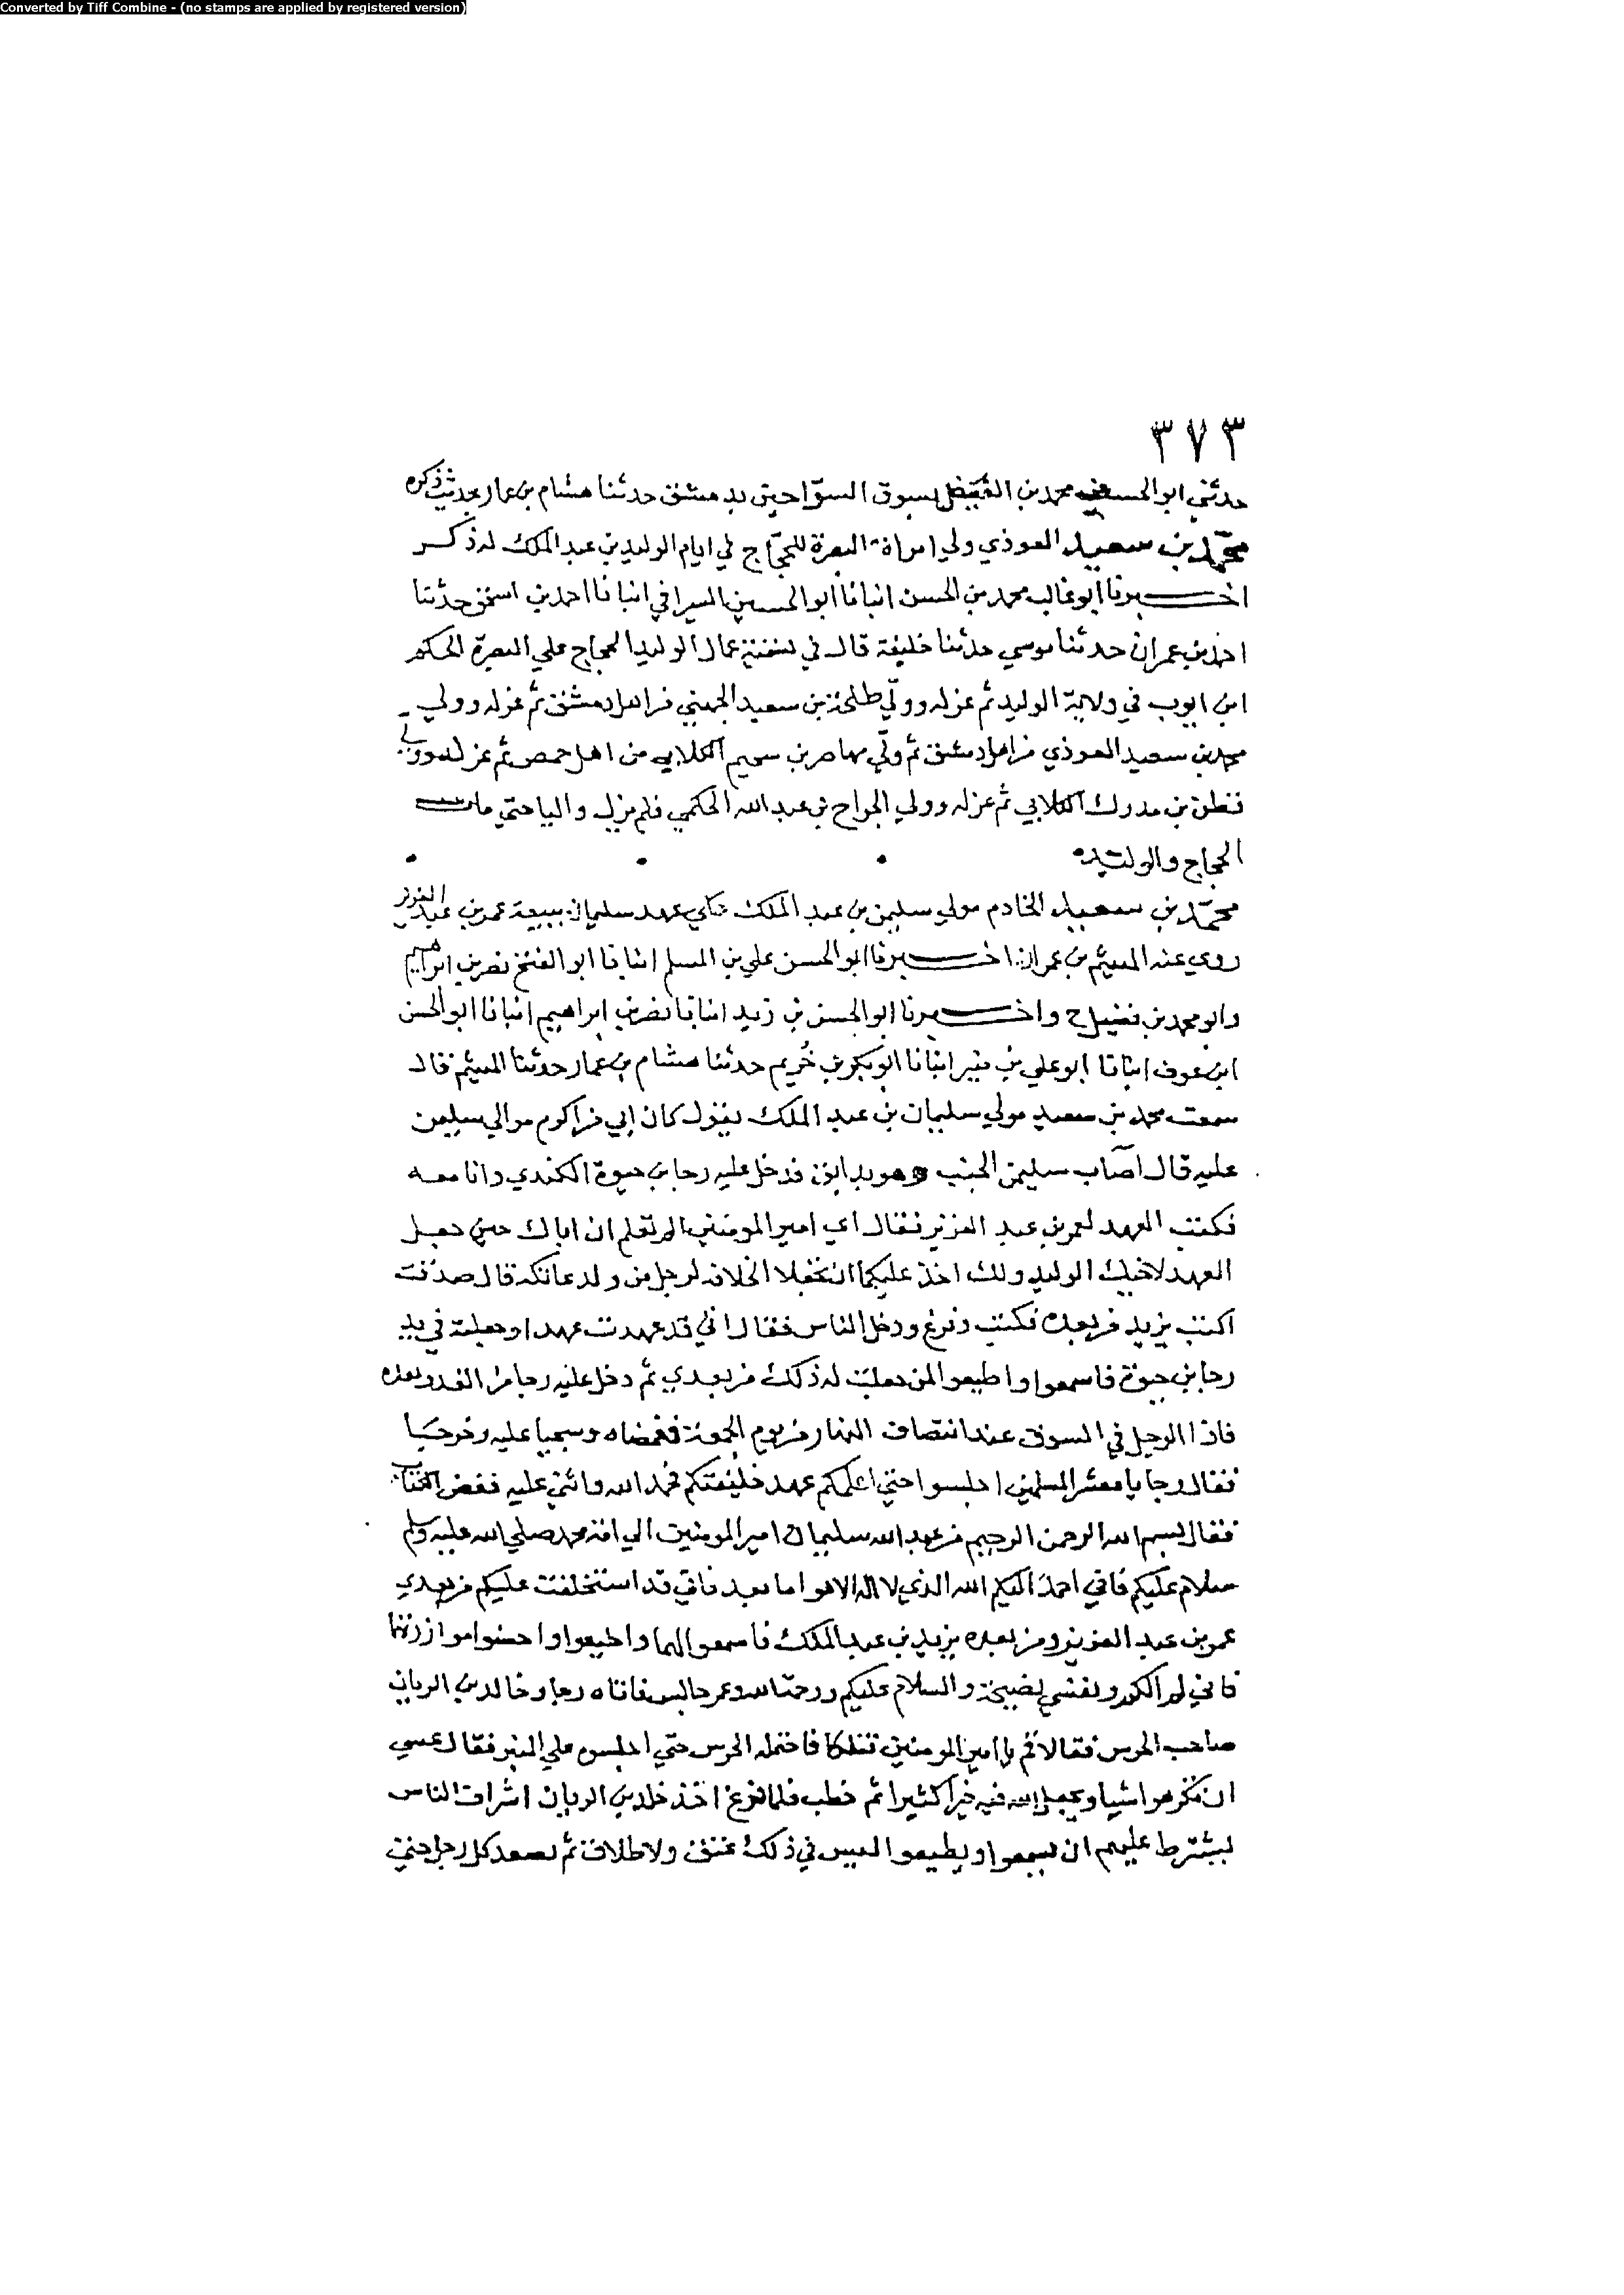 Converted by Tiff Combine - (no stamps are applied by registered version)
٣٧٣
حدثني ابو الحسين محمد بن الفيض بسوق السواحين بدمشق حدثنا هشام بن عمار بحديث ذكره
محمد بن سعيد العوذي ولي امراة البصرة للحجاج في ايام الوليد بن عبد الملك له ذكر
اخبرنا ابو غالب محمد بن الحسن انبانا ابو الحسين السيرافي انبانا احمد بن اسحق حدثنا
احمد بن عمران حدثنا موسي حدثنا خليفة قال في تسمية عمال الوليد الحجاج علي البصرة الحكم
ابن ايوب في ولاية الوليد ثم عزله وولي طلحة بن سعيد الجهني من اهل دمشق ثم عزله وولي
محمد بن سعيد العوذي من اهل دمشق ثم ولي مهاصر بن سحيم الكلابي من اهل حمص ثم عزله وولي
قطن بن مدرك الكلابي ثم عزله وولي الجراح بن عبد الله الحكمي فلم يزل واليا حتي مات
الحجاج والوليد
محمد بن سعيد الخادم مولي سليمن بن عبد الملك حكي عهد سليمان ببيعة عمر بن عبد العزيز
روي عنه الهيثم بن عمران اخبرنا ابو الحسن علي بن المسلم انبانا ابو الفتح نصر بن ابراهيم
وابو محمد بن فضيل ح واخبرنا ابو الحسن بن زيد انبانا نصر بن ابراهيم انبانا ابو الحسن
ابن عوف انبانا ابو علي بن منير انبانا ابو بكر بن خريم حدثنا هشام بن عمار حدثنا الهيثم قال
سمعت محمد بن سعيد مولي سليمان بن عبد الملك يقول كان ابي من اكرم موالي سليمن
عليه قال اصاب سليمن الجنب وهو بدابق فدخل عليه رجا بن حيوة الكندي وانا معه
فكتب العهد لعمر بن عبد العزيز فقال اي امير المومنين الم تعلم ان اباك حين جعل
العهد لاخيك الوليد ولك اخذ عليكما ان تجعلا الخلافة لرجل من ولد عاتكة قال صدقت
اكتب يزيد من بعده فكتب وفرغ ودخل الناس فقال اني قد عهدت عهدا وجعلته في يد
رجا بن حيوة فاسمعوا واطيعوا لمن جعلت له ذلك من بعدي ثم دخل عليه رجا من الغد وبعده
فاذا الرجل في السوق عند انتصاف النهار من يوم الجمعة فغمضاه وسجيا عليه وخرجا
فقال رجا يا معشر المسلمين اجلسوا حتي اعلمكم عهد خليفتكم فحمد الله واثني عليه ففض الكتاب
فقال بسم الله الرحمن الرحيم من عبد الله سليمان امير المومنين الي امة محمد صلي الله عليه وسلم
سلام عليكم فاني احمد اليكم الله الذي لا اله الا هو اما بعد فاني قد استخلفت عليكم من بعدي
عمر بن عبد العزيز ومن بعده يزيد بن عبد الملك فاسمعوا لهما واطيعوا واحسنوا موازرتهما
فاني لم الكم ونفسي نصيحة والسلام عليكم ورحمة الله وعمر جالس فاتاه رجا وخالد بن الريان
صاحب الحرس فقالا قم يا امير المومنين فتلكا فاحتمله الحرس حتي اجلسوه علي المنبر فقال عسي
ان تكرهوا شيا ويجعل الله فيه خيرا كثيرا ثم خطب فلما فرغ اخذ خلد بن الريان اشراف الناس
يشترط عليهم ان يسمعوا ويطيعوا ليس في ذلك عتق ولا طلاق ثم يصعد كل رجل حتي